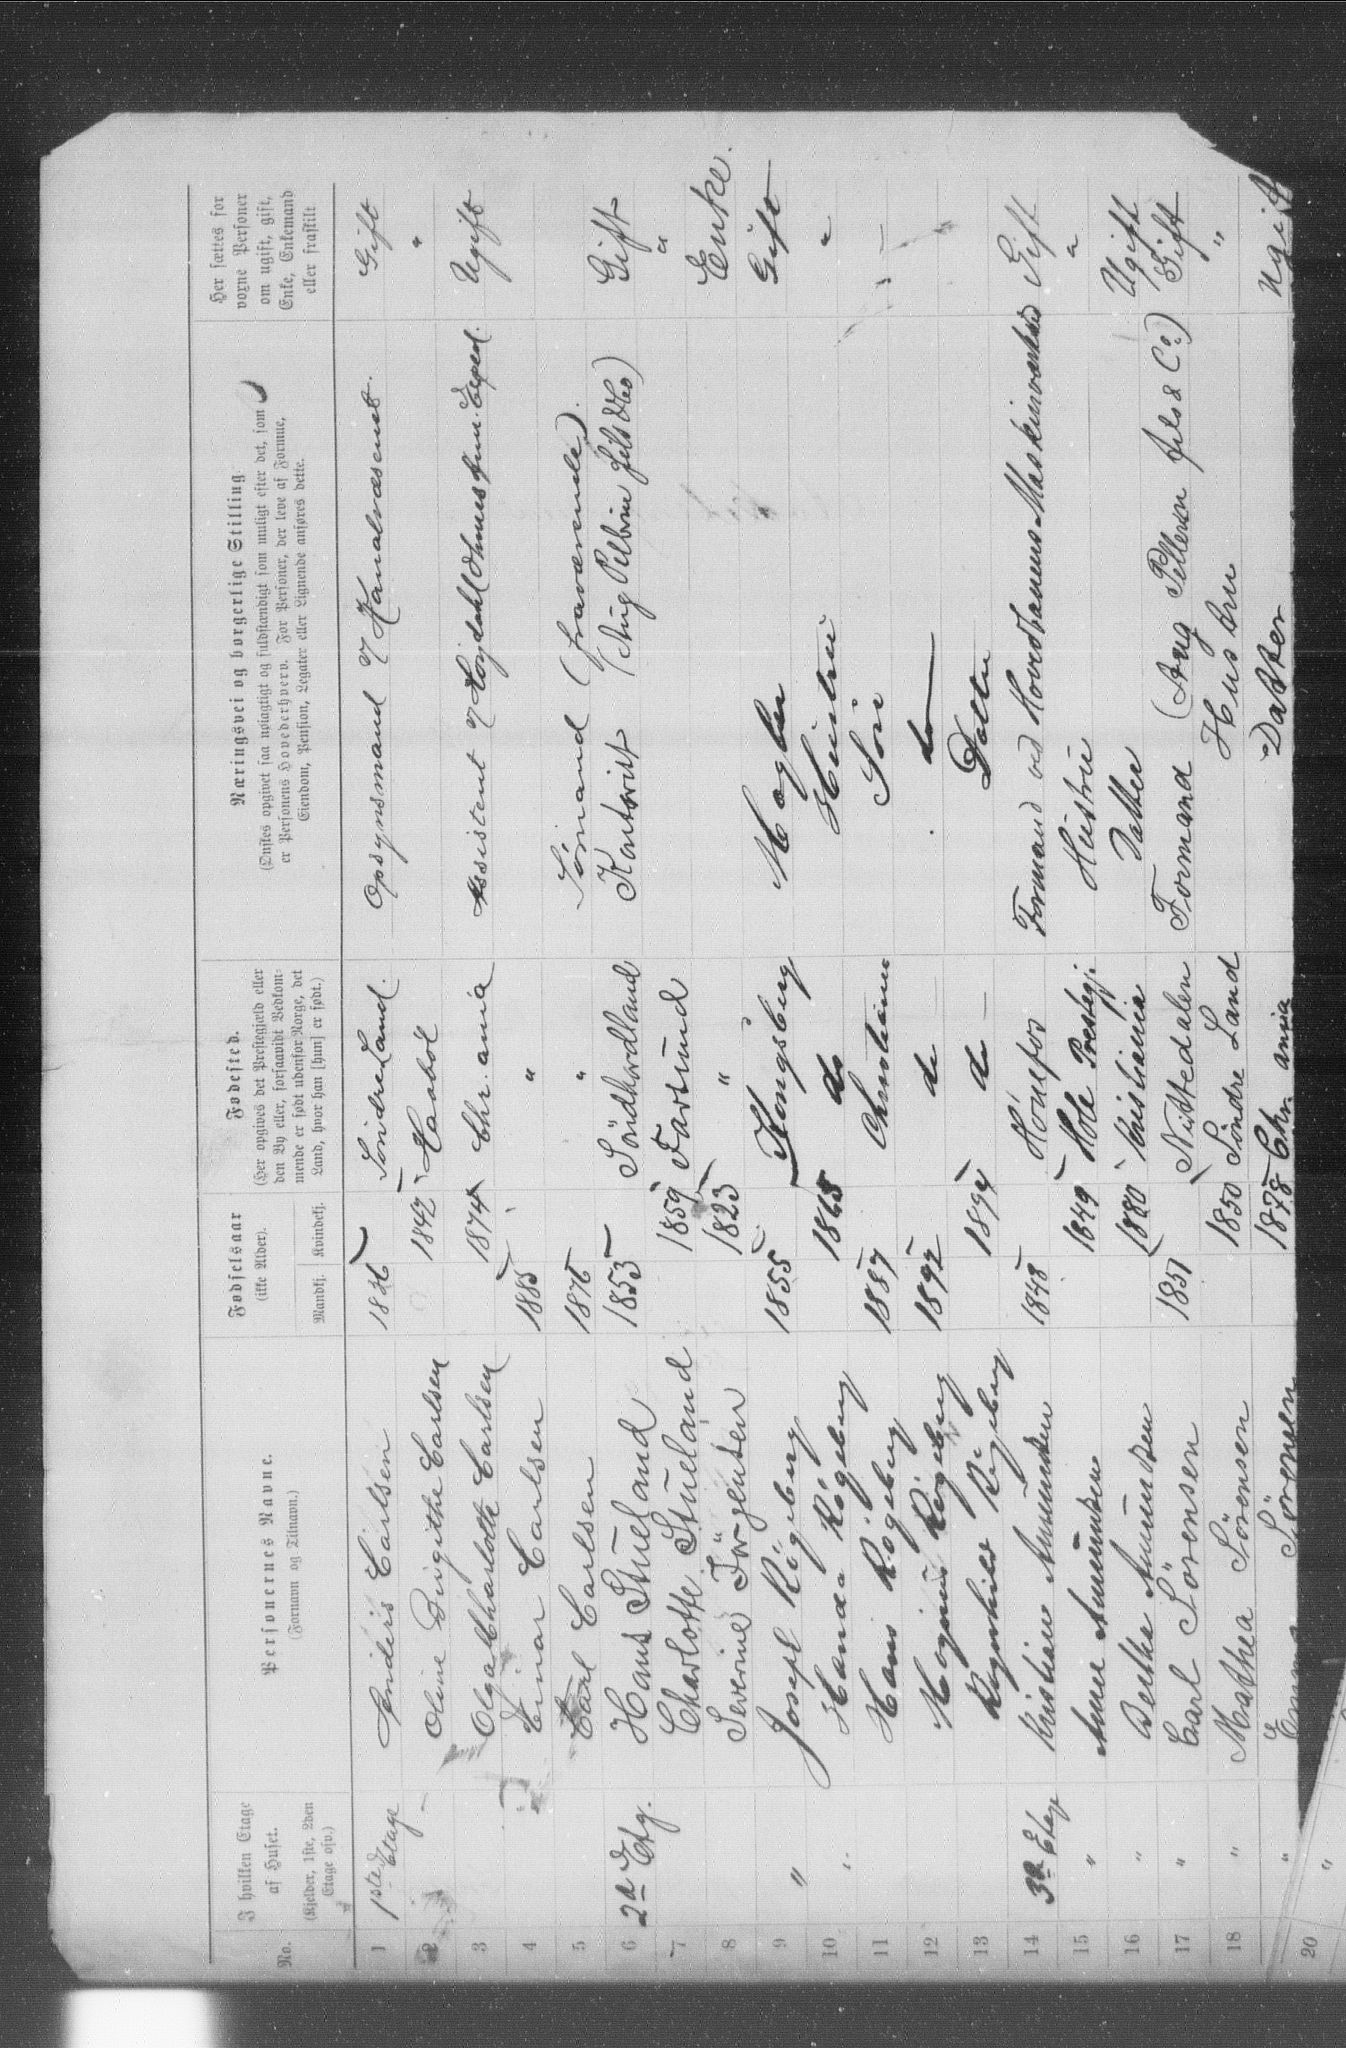 No.
I hvilken Etage af Huset.
(Kjelder, 1ste, 2den Etage osv.)
Personernes Navne.
(Fornavn og Tilnavn.)
Fødselsaar
(ikke Alder).
Mandkj.
Kvindekj.
Fødested.
(Her opgives det Prestegjæld eller
den By eller, forsaavidt Vedkom-
mende er født udenfor Norge, det
Land, hvor han [hun] er født.)
Næringsvei og borgerlige Stilling
(Ønskes opgivet saa nøiagtigt og fuldstændigt som muligt efter det, som
er Personens Hovederhverv. For Personer, der leve af Formue,
Eiendom, Pension, Legater eller Lignende anføres dette.
Her sættes for
voxne Personer
om ugift, gift,
Enke, Enkemand
eller fraskilt
1 1ste Etage Anders Carlsen 1846 Söndre Land. Opsynsmand v/ Kanalvæsenet. Gift
2 Oline Birgithe Carlsen 1842 Haaböl "
3 Olga Charlotte Carlsen 1874 Chr.ania Assistent v/ Ugift
4 Einar Carlsen 1885 "
5 Carl Carlsen 1876 " Sömand (fraværende).
6 2d Etg. Hans Stueland 1853 Söndhordland Kontorist Gift
7 Charlotte Stueland 1859 Farsund "
8 Severine Jörgensen 1823 " Enke.
9 " Joseph Rögeberg 1855 Kongsberg Mægler Gift
10 " Handa Rögeberg 1865 do Hustru "
11 Hans Rögeberg 1887 Christiania Sön
12 Magnus Rögeberg 1892 do do
13 Ragnhild Rögeberg 1894 do Datter
14 3d Etage Kristian Amundsen 1848 Hönefos Formand ved Hovedbanens Maskinværksted Gift
15 " Anne Amundsen 1849 Hole Prestegj. Hustru "
16 " Berthe Amundsen 1880 Kristiania Datter Ugift
17 " Carl Sörensen 1851 Nittedalen Formand (Aug Pellerin fils & Co.) Gift
18 " Mathea Sörensen 1850 Söndre Land Hustru "
" Emma Sörensen 1878 Chr. ania Datter Ugift
20 "